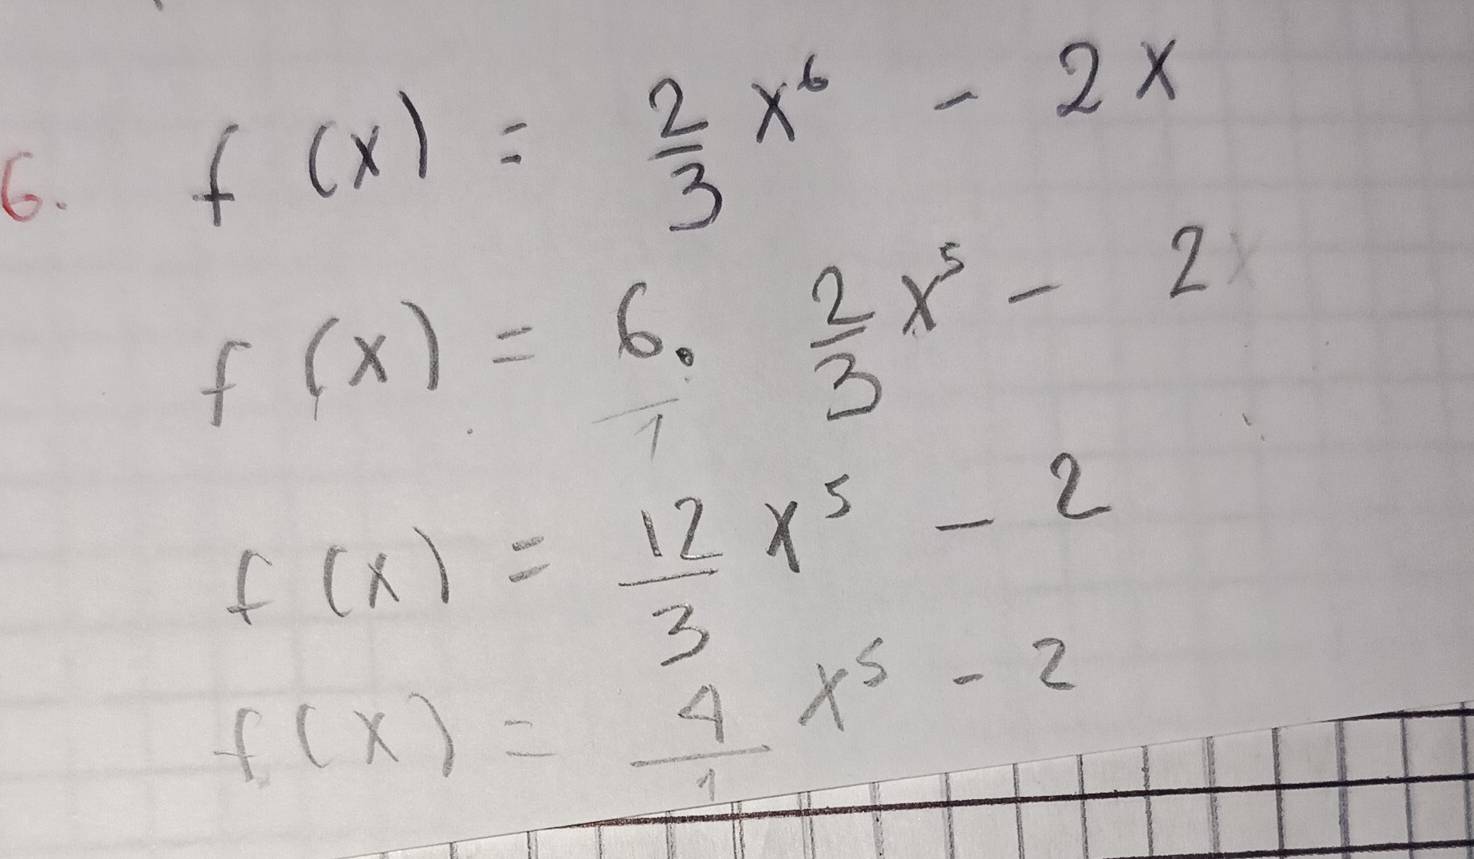 6. f(x) = 2/3 x⁶ - 2x
f(x) = 6/1 · 2/3 x⁵ - 2x
f(x) = 12/3 x⁵ - 2
f(x) = 4/1 x⁵ - 2